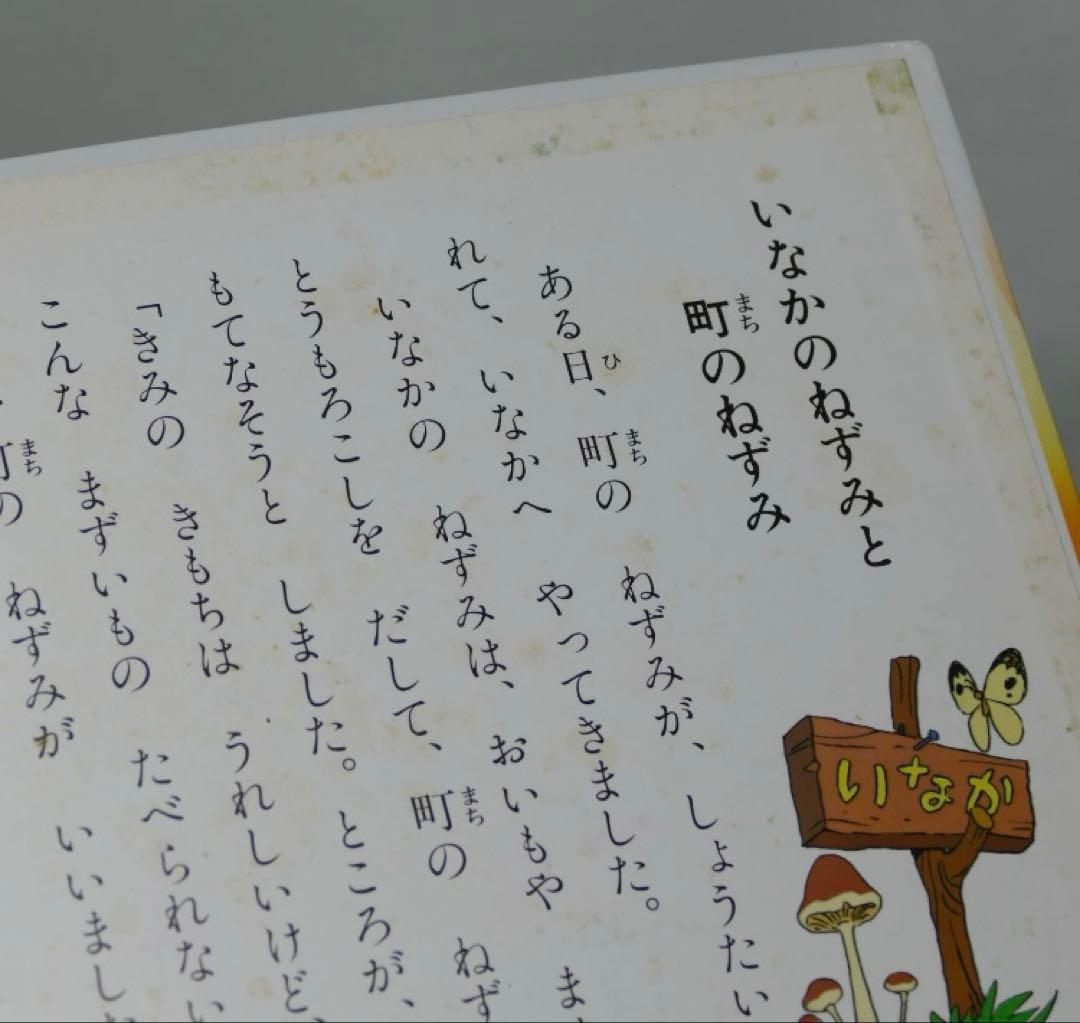 いなかのねずみと
町のねずみ
まち
ある日、町の ねずみが、 しょうたい
ひ
まち
れて、 いなかへ やってきました。
いなかの ねずみは、 おいもや ま
とうもろこしを だして、 町の ねず
まち
もてなそうと しました。 ところが、
「きみの きもちは うれしいけど、
こんな まずいもの たべられない
町の ねずみが いいまし
まち
いなか